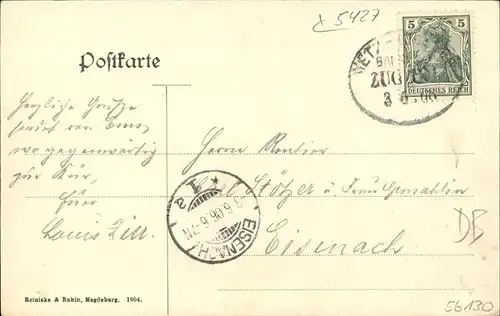 x 5427
5 5
DEUTSCHES REICH
WETZ
BAH
ZUG
3 6 06
Postkarte
Herzliche Grüße
sendet von Ems,
wo gegenwärtig
zur Kur,
Euer
Louis
Herrn Rentier
Stötzer u Frau Gemahlin
Eisenach
EISENACH
* 1 c
3.6.06.6-7N
DB
Reinicke & Rubin, Magdeburg. 1904.
56130